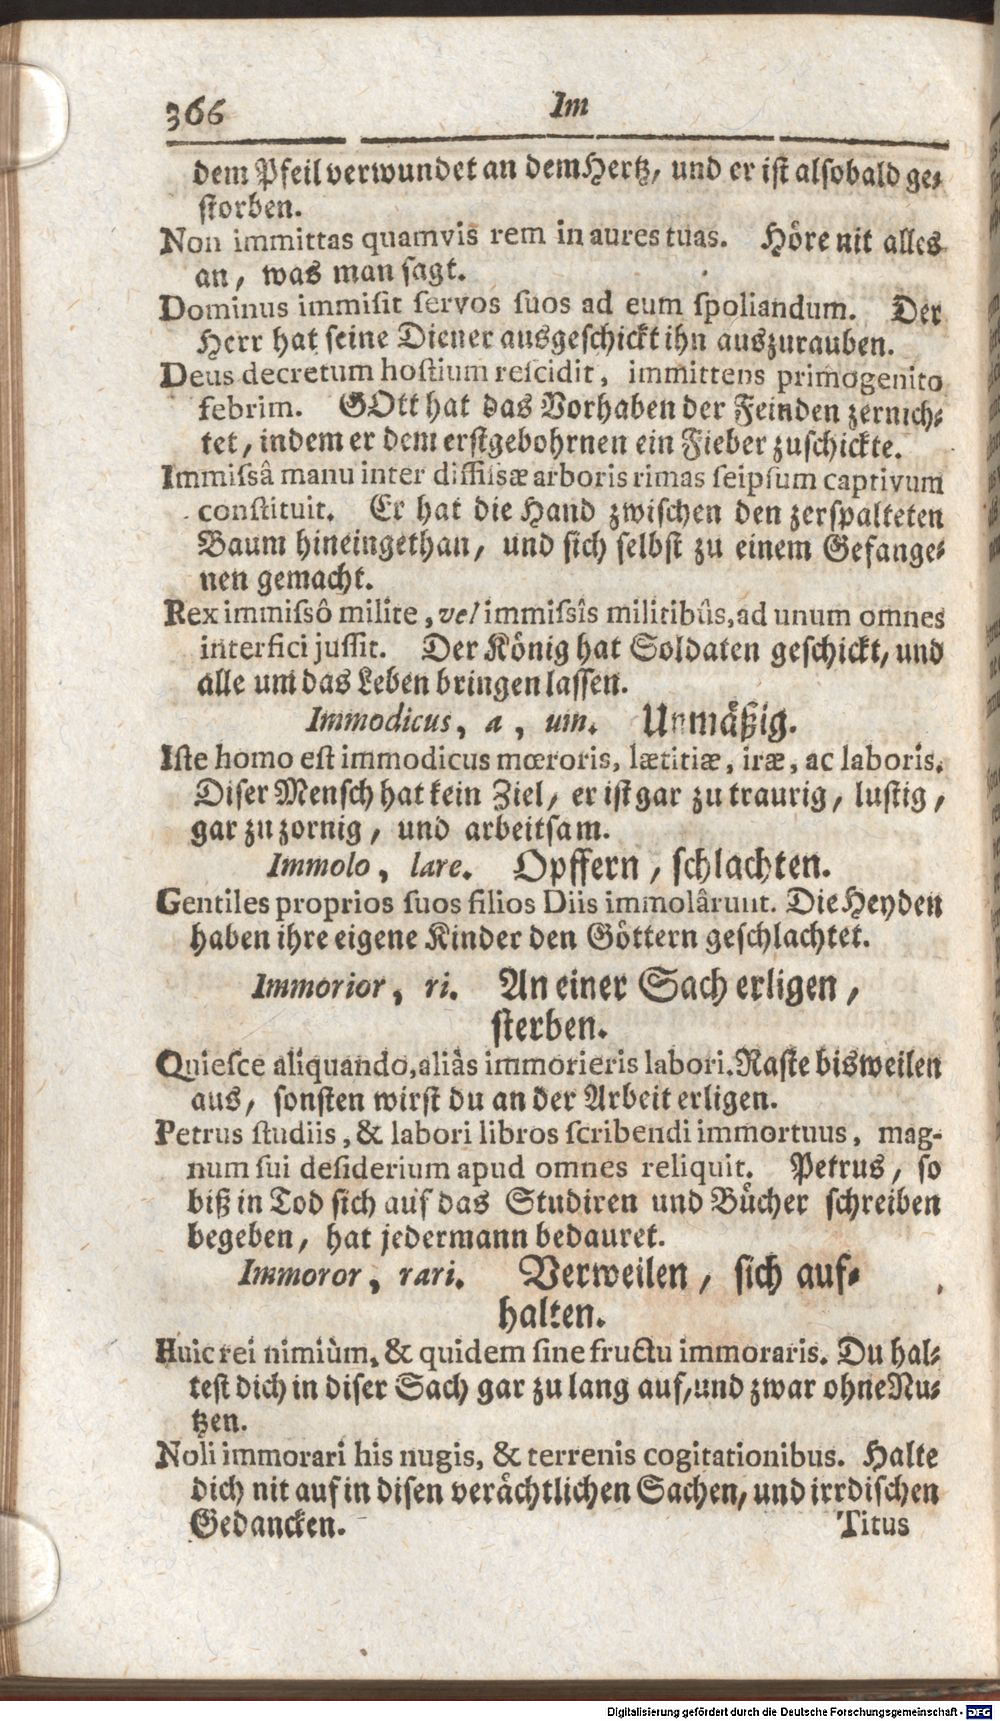 366 Im
dem Pfeil verwundet an dem Hertz, und er ist alsobald ge-
storben.
Non immittas quamvis rem in aures tuas. Höre nit alles
an, was man sagt.
Dominus immisit servos suos ad eum spoliandum. Der
Herr hat seine Diener ausgeschickt ihn auszurauben.
Deus decretum hostium rescidit, immittens primogenito
febrim. GOtt hat das Vorhaben der Feinden zernich-
tet, indem er dem erstgebohrnen ein Fieber zuschickte.
Immissâ manu inter diffissæ arboris rimas seipsum captivum
constituit. Er hat die Hand zwischen den zerspalteten
Baum hineingethan, und sich selbst zu einem Gefange-
nen gemacht.
Rex immissô milite, vel immissîs militibûs, ad unum omnes
interfici jussit. Der König hat Soldaten geschickt, und
alle um das Leben bringen lassen.
Immodicus, a, um. Unmäßig.
Iste homo est immodicus mœroris, lætitiæ, iræ, ac laboris.
Diser Mensch hat kein Ziel, er ist gar zu traurig, lustig,
gar zu zornig, und arbeitsam.
Immolo, lare. Opffern, schlachten.
Gentiles proprios suos filios Diis immolârunt. Die Heyden
haben ihre eigene Kinder den Göttern geschlachtet.
Immorior, ri. An einer Sach erligen,
sterben.
Quiesce aliquando, aliàs immorieris labori. Raste bisweilen
aus, sonsten wirst du an der Arbeit erligen.
Petrus studiis, & labori libros scribendi immortuus, mag-
num sui desiderium apud omnes reliquit. Petrus, so
biß in Tod sich auf das Studiren und Bücher schreiben
begeben, hat jedermann bedauret.
Immoror, rari. Verweilen, sich auf-
halten.
Huic rei nimiùm, & quidem sine fructu immoraris. Du hal-
test dich in diser Sach gar zu lang auf, und zwar ohne Nu-
tzen.
Noli immorari his nugis, & terrenis cogitationibus. Halte
dich nit auf in disen verächtlichen Sachen, und irrdischen
Gedancken. Titus
Digitalisierung gefördert durch die Deutsche Forschungsgemeinschaft - DFG